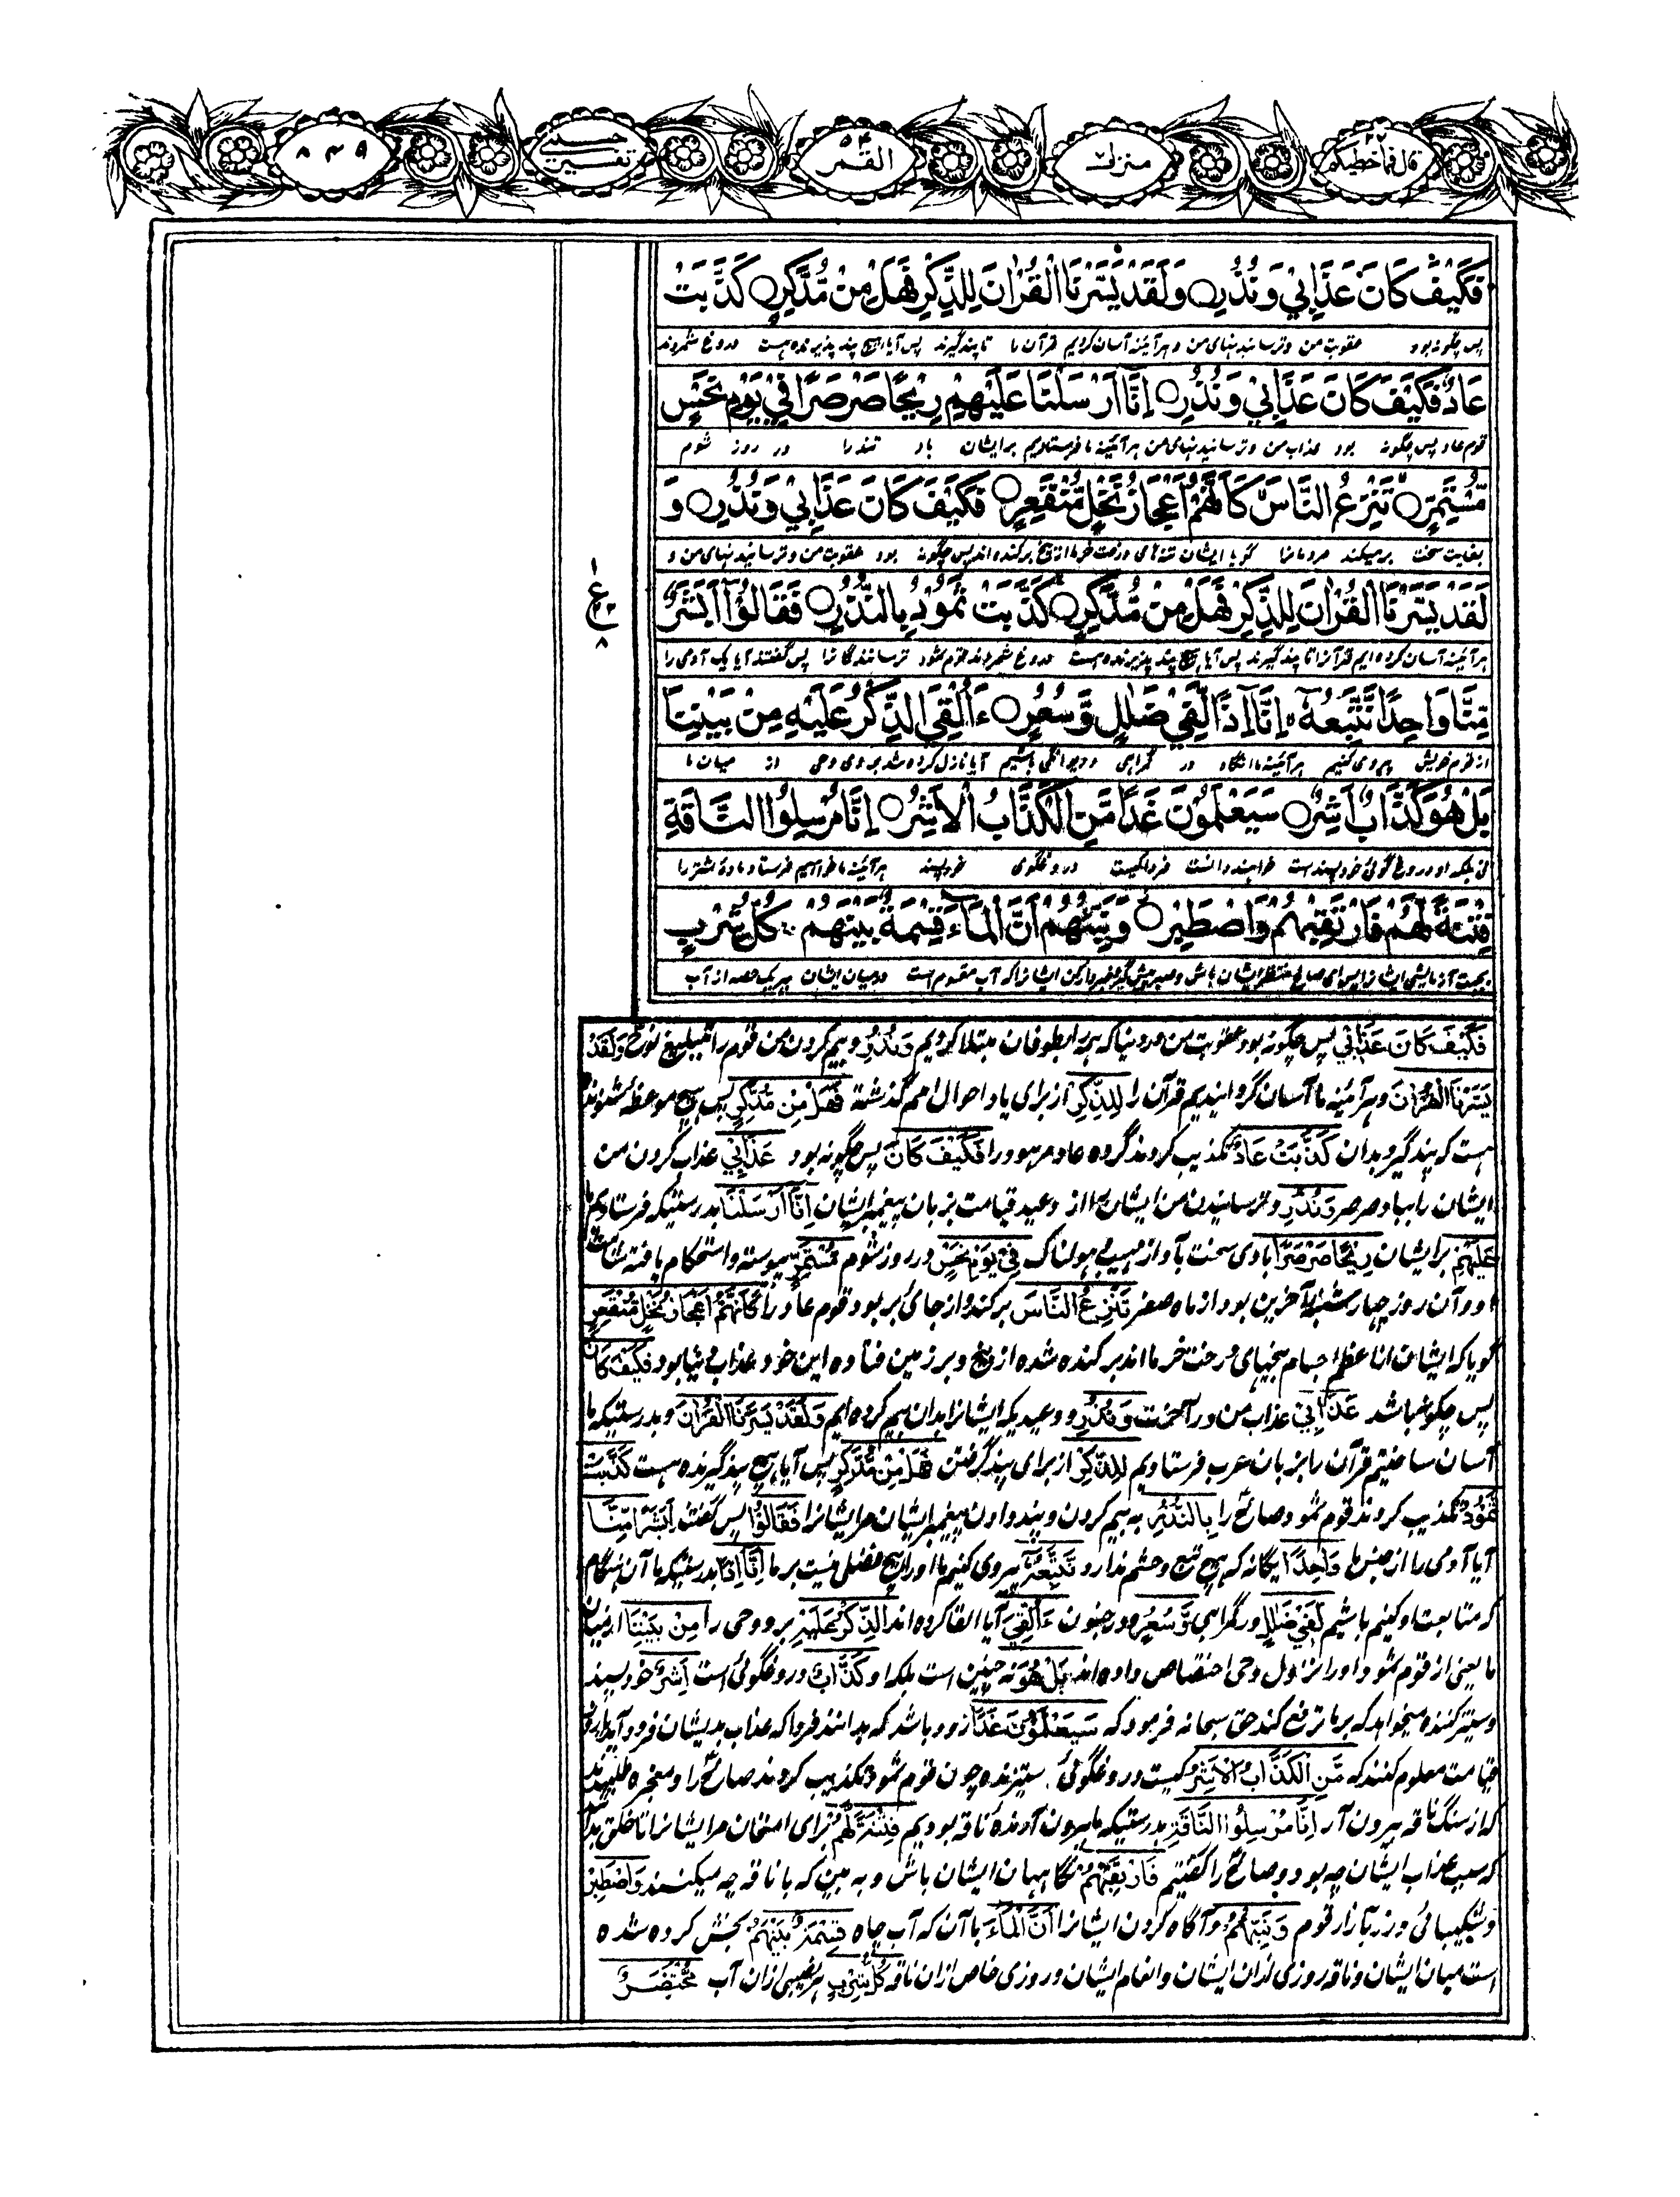 قال فما خطبکم ۲۷
منزل ۷
القمر ۵۴
تفسیر حسینی
۸۳۹
فَكَيْفَ كَانَ عَذَابِيْ وَنُذُرِ ○ وَلَقَدْ يَسَّرْنَا الْقُرْاٰنَ لِلذِّكْرِ فَهَلْ مِنْ مُّدَّكِرٍ ○ كَذَّبَتْ
پس چگونه بود عقوبت من و ترسانیدنهای من و هر آئینه آسان کردیم قرآن را تا پند گیرند پس آیا هیچ پند پذیرنده هست دروغ شمردند
عَادٌ فَكَيْفَ كَانَ عَذَابِيْ وَنُذُرِ ○ اِنَّا اَرْسَلْنَا عَلَيْهِمْ رِيْحًا صَرْصَرًا فِيْ يَوْمِ نَحْسٍ
قوم عاد پس چگونه بود عذاب من و ترسانیدنهای من هر آئینه ما فرستادیم بر ایشان باد تند را در روز شوم
مُّسْتَمِرٍّ ○ تَنْزِعُ النَّاسَ كَاَنَّهُمْ اَعْجَازُ نَخْلٍ مُّنْقَعِرٍ ○ فَكَيْفَ كَانَ عَذَابِيْ وَنُذُرِ ○ وَ
بغایت سخت بر میکند مردمانرا گویا ایشان تنه‌های درخت خرما از بیخ برکنده اند پس چگونه بود عقوبت من و ترسانیدنهای من و
لَقَدْ يَسَّرْنَا الْقُرْاٰنَ لِلذِّكْرِ فَهَلْ مِنْ مُّدَّكِرٍ ○ كَذَّبَتْ ثَمُوْدُ بِالنُّذُرِ ○ فَقَالُوْٓا اَبَشَرًا
هر آئینه آسان کرده ایم قرآنرا تا پند گیرند پس آیا هیچ پند پذیرنده هست دروغ شمردند قوم ثمود ترسانندگانرا پس گفتند آیا یک آدمی را
مِّنَّا وَاحِدًا نَّتَّبِعُهٗٓ ۙ اِنَّآ اِذًا لَّفِيْ ضَلٰلٍ وَّسُعُرٍ ○ ءَاُلْقِيَ الذِّكْرُ عَلَيْهِ مِنْۢ بَيْنِنَا
از قوم خویش پیروی کنیم هر آئینه ما آنگاه در گمراهی و دیوانگی باشیم آیا نازل کرده شد بر وی وحی از میان ما
بَلْ هُوَ كَذَّابٌ اَشِرٌ ○ سَيَعْلَمُوْنَ غَدًا مَّنِ الْكَذَّابُ الْاَشِرُ ○ اِنَّا مُرْسِلُوا النَّاقَةِ
نی بلکه او دروغ گوئی خود پسند است خواهند دانست فردا کیست دروغگوی خود پسند هر آئینه ما خواهیم فرستاد ماده شتر را
فِتْنَةً لَّهُمْ فَارْتَقِبْهُمْ وَاصْطَبِرْ ○ وَنَبِّئْهُمْ اَنَّ الْمَآءَ قِسْمَةٌۢ بَيْنَهُمْ ۚ كُلُّ شِرْبٍ
بجهت آزمایش ایشانرا پس ای صالح منتظر ایشان باش و صبر پیش گیر و خبردار کن ایشانرا که آب مقسوم است درمیان ایشان هر یک حصه از آب
۱
ع
۸
فَكَيْفَ كَانَ عَذَابِيْ پس چگونه بود عقوبت من در دنیا که همه را بطوفان مبتلا کردیم وَنُذُرِ و بیم کردن من قوم را بتبلیغ نوح وَلَقَدْ
يَسَّرْنَا الْقُرْاٰنَ و هر آئینه ما آسان گردانیدیم قرآن را لِلذِّكْرِ از برای یاد احوال امم گذشته فَهَلْ مِنْ مُّدَّكِرٍ پس هیچ موعظه شنونده
هست که پند گیرد بدان كَذَّبَتْ عَادٌ تکذیب کردند گروه عاد مر هود را فَكَيْفَ كَانَ پس چگونه بود عَذَابِيْ عذاب کردن من
ایشان را بباد صرصر وَنُذُرِ و ترسانیدن من ایشان را از وعید قیامت بزبان پیغمبر ایشان اِنَّا اَرْسَلْنَا بدرستیکه فرستادیم ما
عَلَيْهِمْ بر ایشان رِيْحًا صَرْصَرًا بادی سخت با آواز مهیب هولناک فِيْ يَوْمِ نَحْسٍ در روز شوم مُّسْتَمِرٍّ پیوسته و استحکام یافته
و آن روز چهار شنبه آخرین بود از ماه صفر تَنْزِعُ النَّاسَ برکند و از جای بر بود قوم عاد را كَاَنَّهُمْ اَعْجَازُ نَخْلٍ مُّنْقَعِرٍ
گویا که ایشان از عظم اجسام بیخهای درخت خرما اند برکنده شده از بیخ و بر زمین فتاده این خود عذاب دنیا بود فَكَيْفَ كَانَ
پس چگونه باشد عَذَابِيْ عذاب من در آخرت وَنُذُرِ و وعیدیکه ایشانرا بدان بیم کرده ایم وَلَقَدْ يَسَّرْنَا الْقُرْاٰنَ و بدرستیکه ما
آسان ساختیم قرآن را بزبان عرب فرستادیم لِلذِّكْرِ از برای پند گرفتن فَهَلْ مِنْ مُّدَّكِرٍ پس آیا هیچ پند گیرنده هست كَذَّبَتْ
ثَمُوْدُ تکذیب کردند قوم ثمود صالح را بِالنُّذُرِ به بیم کردن و پند دادن پیغمبر ایشان مر ایشانرا فَقَالُوْا پس گفتند اَبَشَرًا مِّنَّا
آیا آدمی را از جنس ما وَاحِدًا یگانه که هیچ تبع و حشم ندارد نَتَّبِعُهٗ پیروی کنیم ما او را هیچ فضلی نیست بر ما اِنَّا اِذًا بدرستیکه ما آن هنگام
که متابعت او کنیم باشیم لَفِيْ ضَلٰلٍ در گمراهی وَّسُعُرٍ و در جنون ءَاُلْقِيَ آیا القا کرده اند الذِّكْرُ عَلَيْهِ بر و وحی را مِنْۢ بَيْنِنَا از میان
ما یعنی از قوم ثمود او را بنزول وحی اختصاص داده اند بَلْ هُوَ نه چنین است بلکه او كَذَّابٌ دروغگوئی است اَشِرٌ خود پسند
و ستیز کننده میخواهد که بر ما ترفع کند حق سبحانه فرمود که سَيَعْلَمُوْنَ غَدًا زود باشد که بدانند فردا که عذاب بدیشان فرود آید یا روز
قیامت معلوم کنند که مَّنِ الْكَذَّابُ الْاَشِرُ کیست دروغگوئی ستیزنده چون قوم ثمود تکذیب کردند صالح را و معجزه طلبیدند
که از سنگ ناقه بیرون آر اِنَّا مُرْسِلُوا النَّاقَةِ بدرستیکه ما بیرون آرنده ناقه بودیم فِتْنَةً لَّهُمْ برای امتحان مر ایشانرا تا خلق بدانند
که سبب عذاب ایشان چه بود و صالح را گفتیم فَارْتَقِبْهُمْ نگاهبان ایشان باش و به بین که با ناقه چه میکنند وَاصْطَبِرْ
و شکیبائی ورز بآزار قوم وَنَبِّئْهُمْ و آگاه کردن ایشانرا اَنَّ الْمَآءَ بآن که آب چاه قِسْمَةٌۢ بَيْنَهُمْ بخش کرده شده
است میان ایشان و ناقه روزی ازان ایشان و انعام ایشان و روزی خاص ازان ناقه كُلُّ شِرْبٍ هر نصیبی ازان آب مُّحْتَضَرٌ